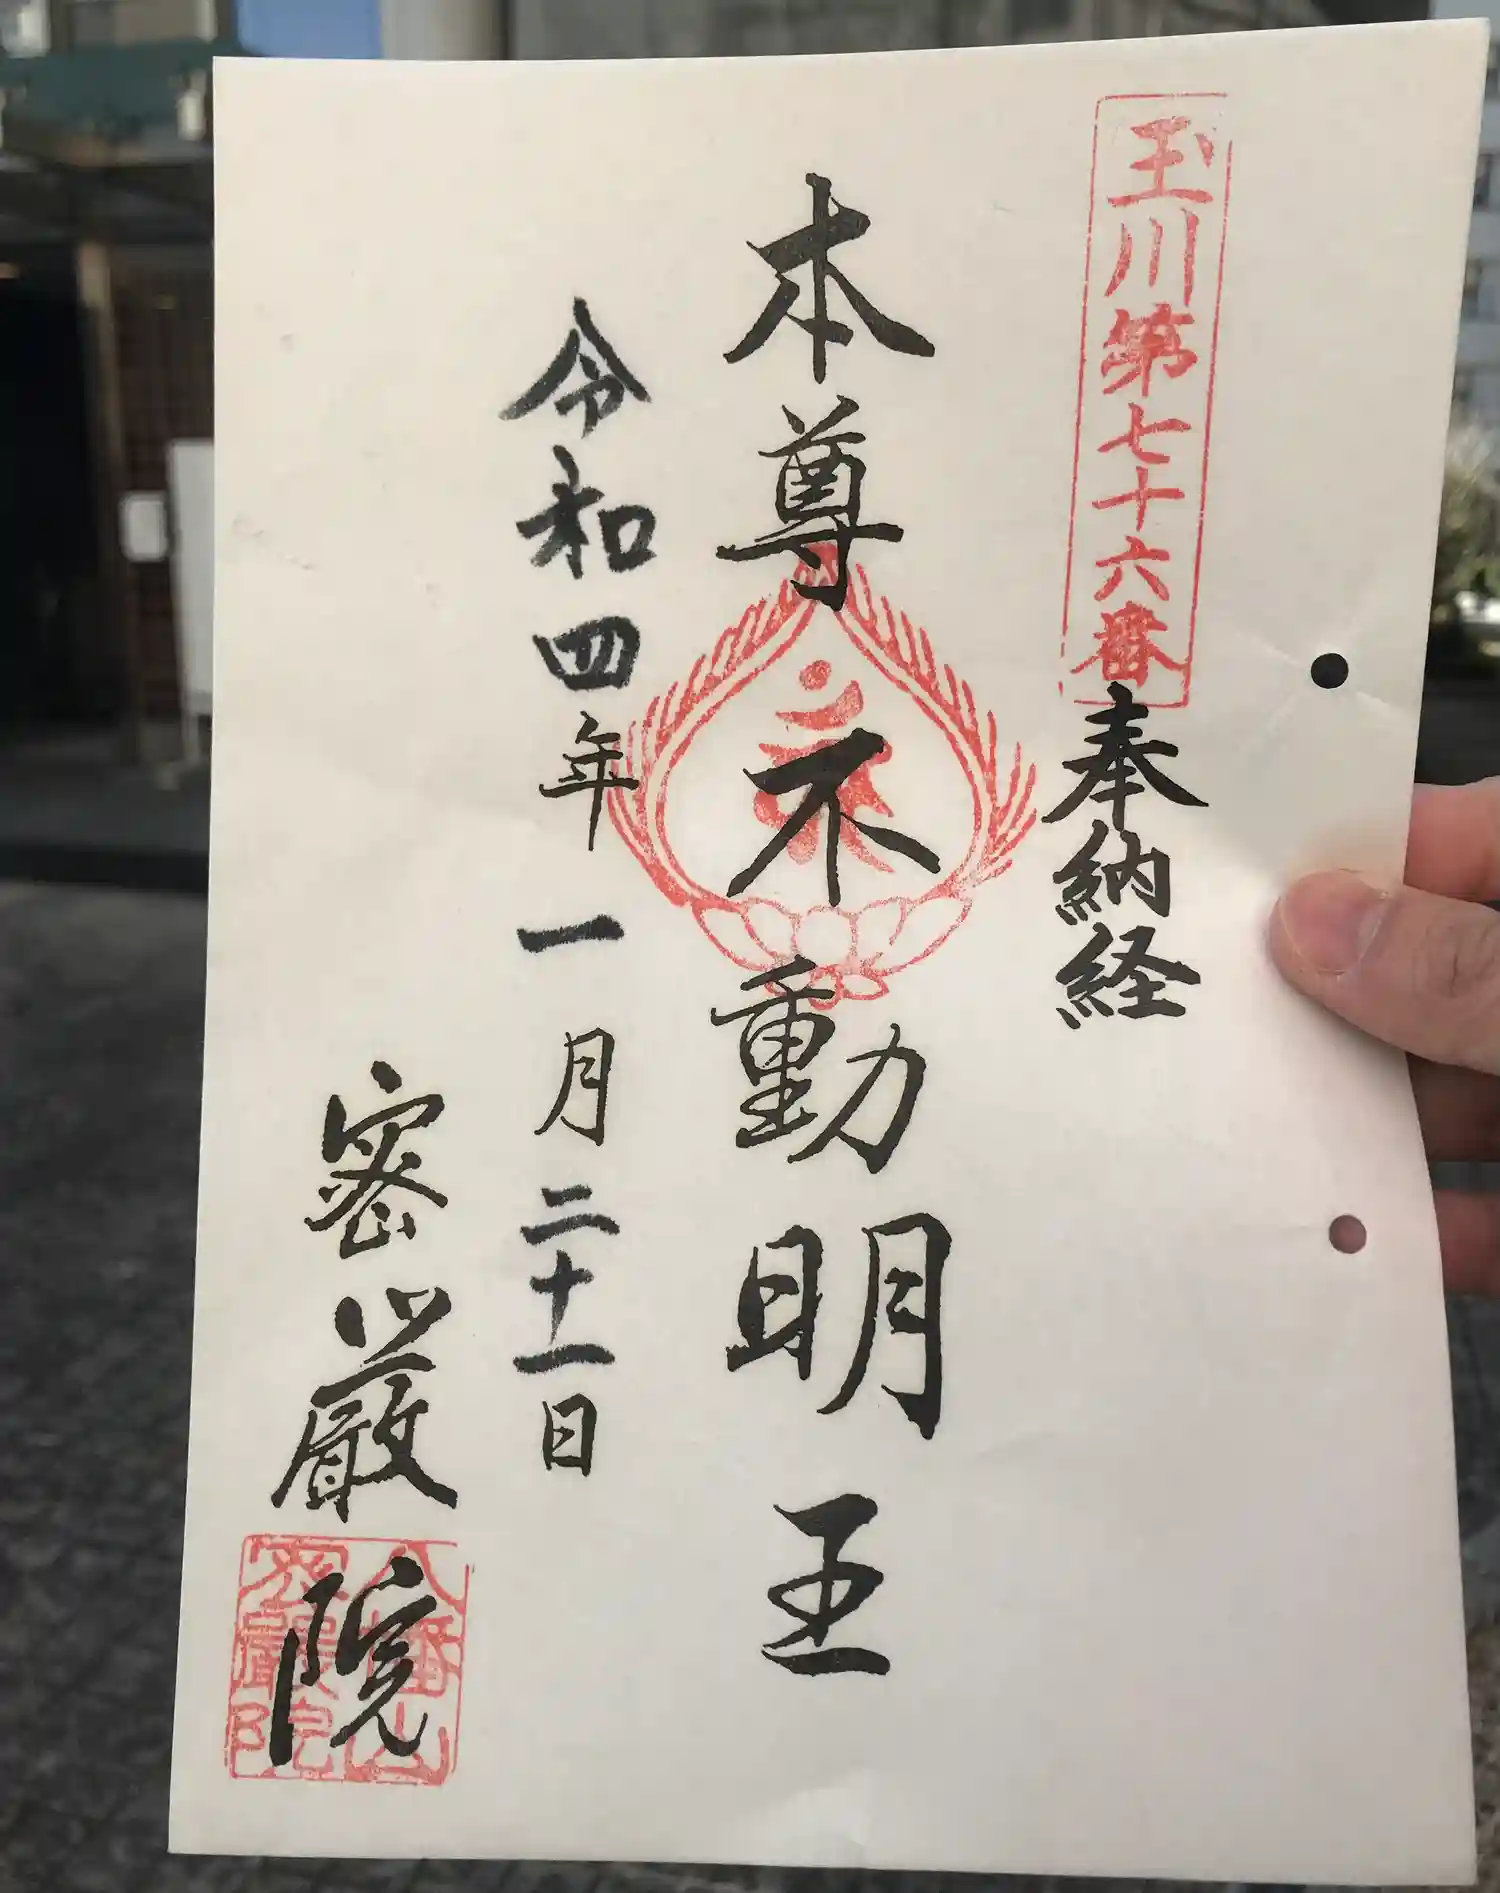 玉川第七十六番
奉納経
本尊不動明王
令和四年一月二十一日
密厳院
八幡山
密嚴院